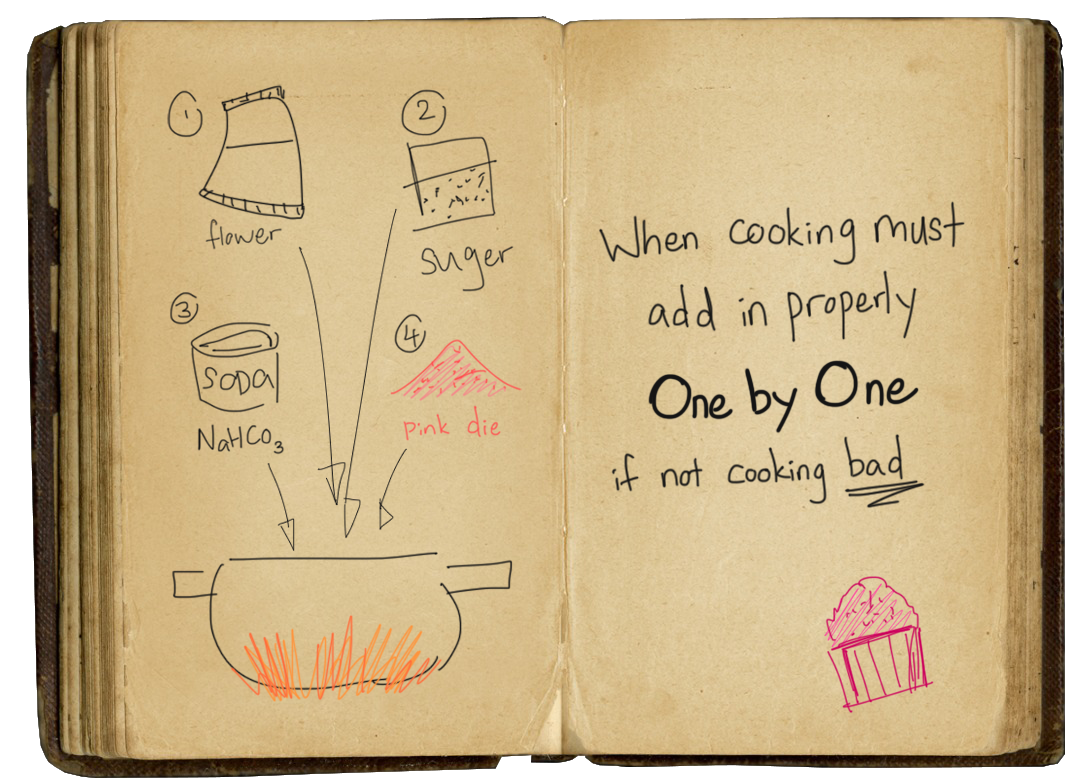 1
flower
2
suger
3
SODA
NaHCO₃
4
pink die
When cooking must
add in properly
One by One
if not cooking bad